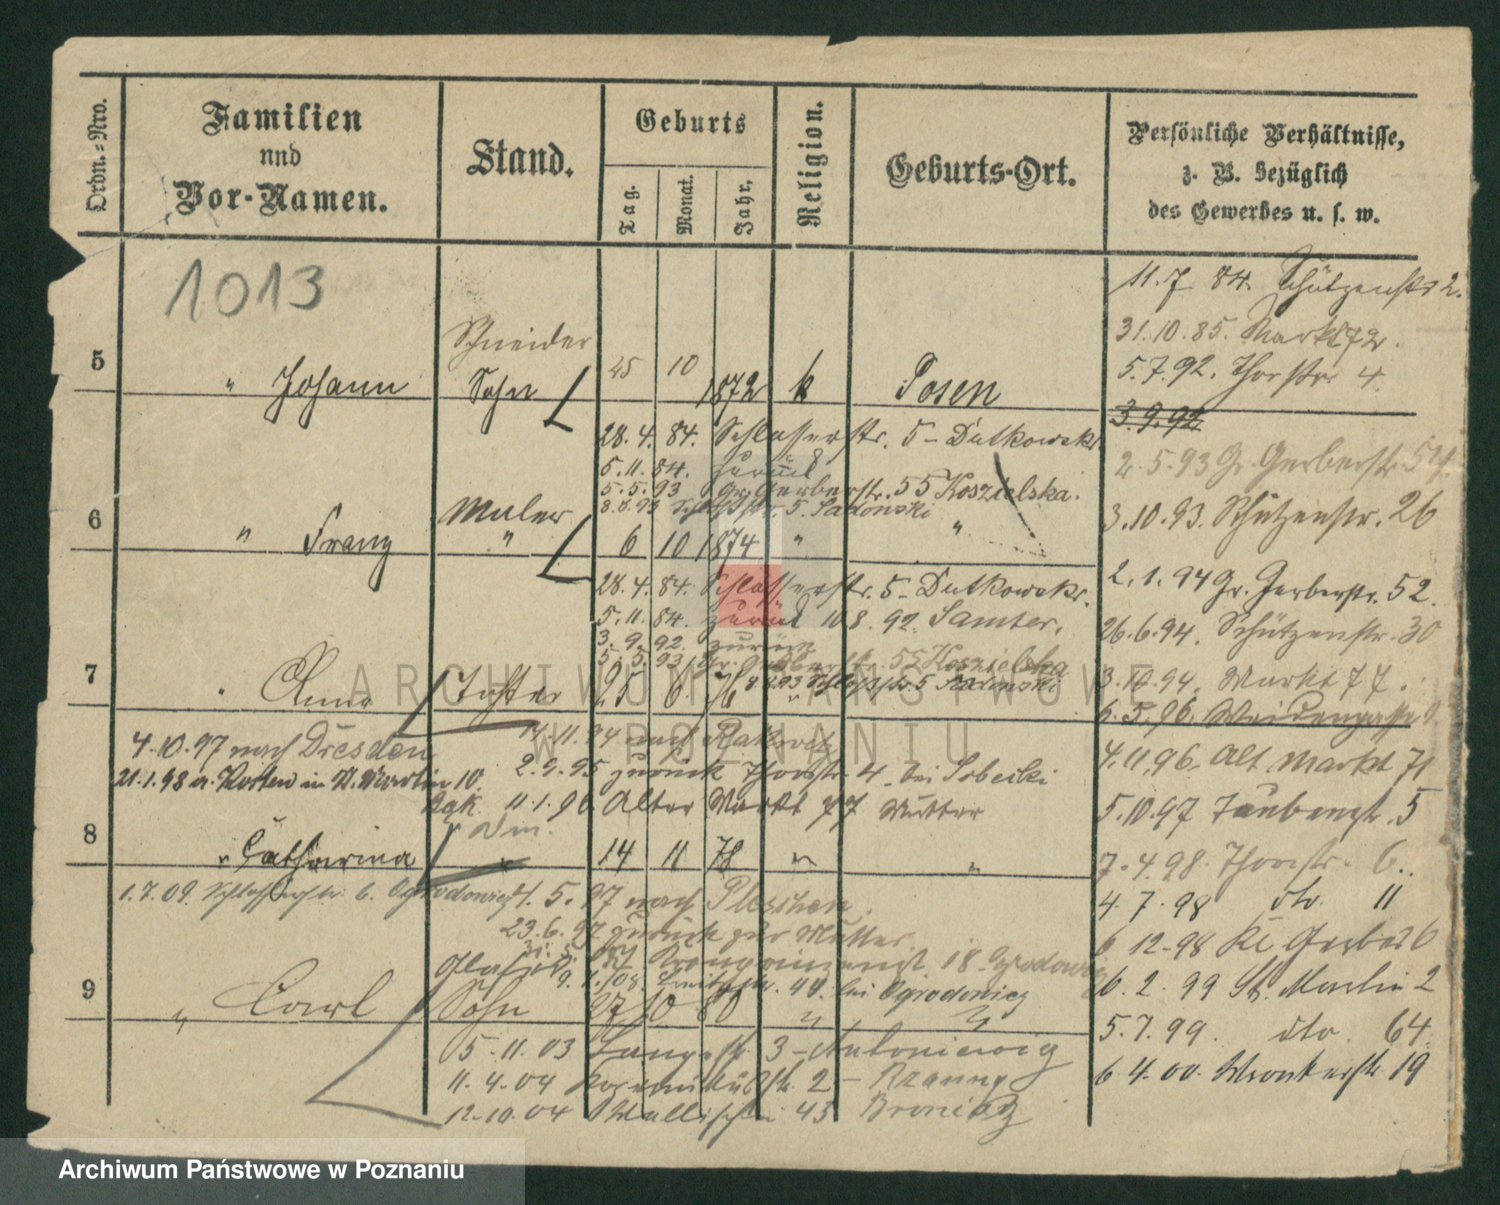 Ordn.-Nro.
Familien
und
Vor-Namen.
Stand.
Geburts
Tag.
Monat.
Jahr,
Religion.
Geburts-Ort.
Persönliche Verhältnisse,
z. B. bezüglich
des Gewerbes u. s. w.
1013
5
" Johann
Schneider
Sohn
25 10 1872 k Posen
28.4.84. Schlosserstr. 5 - Dutkowski
5.11.84. zurück
5.5.93 Gr. Gerberstr. 55 Koszielska.
8.8.93 Schloßstr. 5. Sadowski
6
" Franz
Maler
"
6 10 1874 " "
28.4.84. Schlosserstr. 5 - Dutkowski.
5.11.84. zurück 10.8.92. Samter.
3.9.92. zurück
5.5.93 Gr. Gerberstr. 55 Koszielska
7
" Anna Tochter 25 6 76
4.10.97 nach Dresden
14.11.94 nach
21.1.98 a. Posten in St. Martin 10.
2.9.95 zurück Thorstr. 4. bei Sobecki
11.1.96 Alter Markt 77 Mutter
8
" Catharina " 14 11 78 " "
1.7.09. Schlosserstr. 6. Ogrodowicz
4.5.97 nach Pleschen.
23.6.97 zurück zur Mutter.
9.1.08. 44. bei Ogrodowicz
9
" Carl Sohn 27 10 80 " "
5.11.03 Langestr. 3 - Antoniewicz
11.4.04 2 -
12.10.04 Wallischei 43
11.7.84. Schützenstr 2.
31.10.85. Markt 72.
5.7.92. Thorstr 4.
3.9.92
2.5.93 Gr. Gerberstr. 54
3.10.93. Schützenstr. 26
2.1.94 Gr. Gerberstr. 52.
26.6.94. Schützenstr. 30
3.10.94. Markt 77.
6.5.96. Weidengasse
4.11.96. Alt. Markt 71
5.10.97 Taubenstr. 5
7.4.98. Thorstr. 6.
4.7.98 dto. 11
6 12-98 Kl Gerber 6
6.2.99 St. Martin 2
5.7.99. dto. 64
6 4.00. Wronkerstr. 19
ARCHIWUM PAŃSTWOWE
W POZNANIU
Archiwum Państwowe w Poznaniu